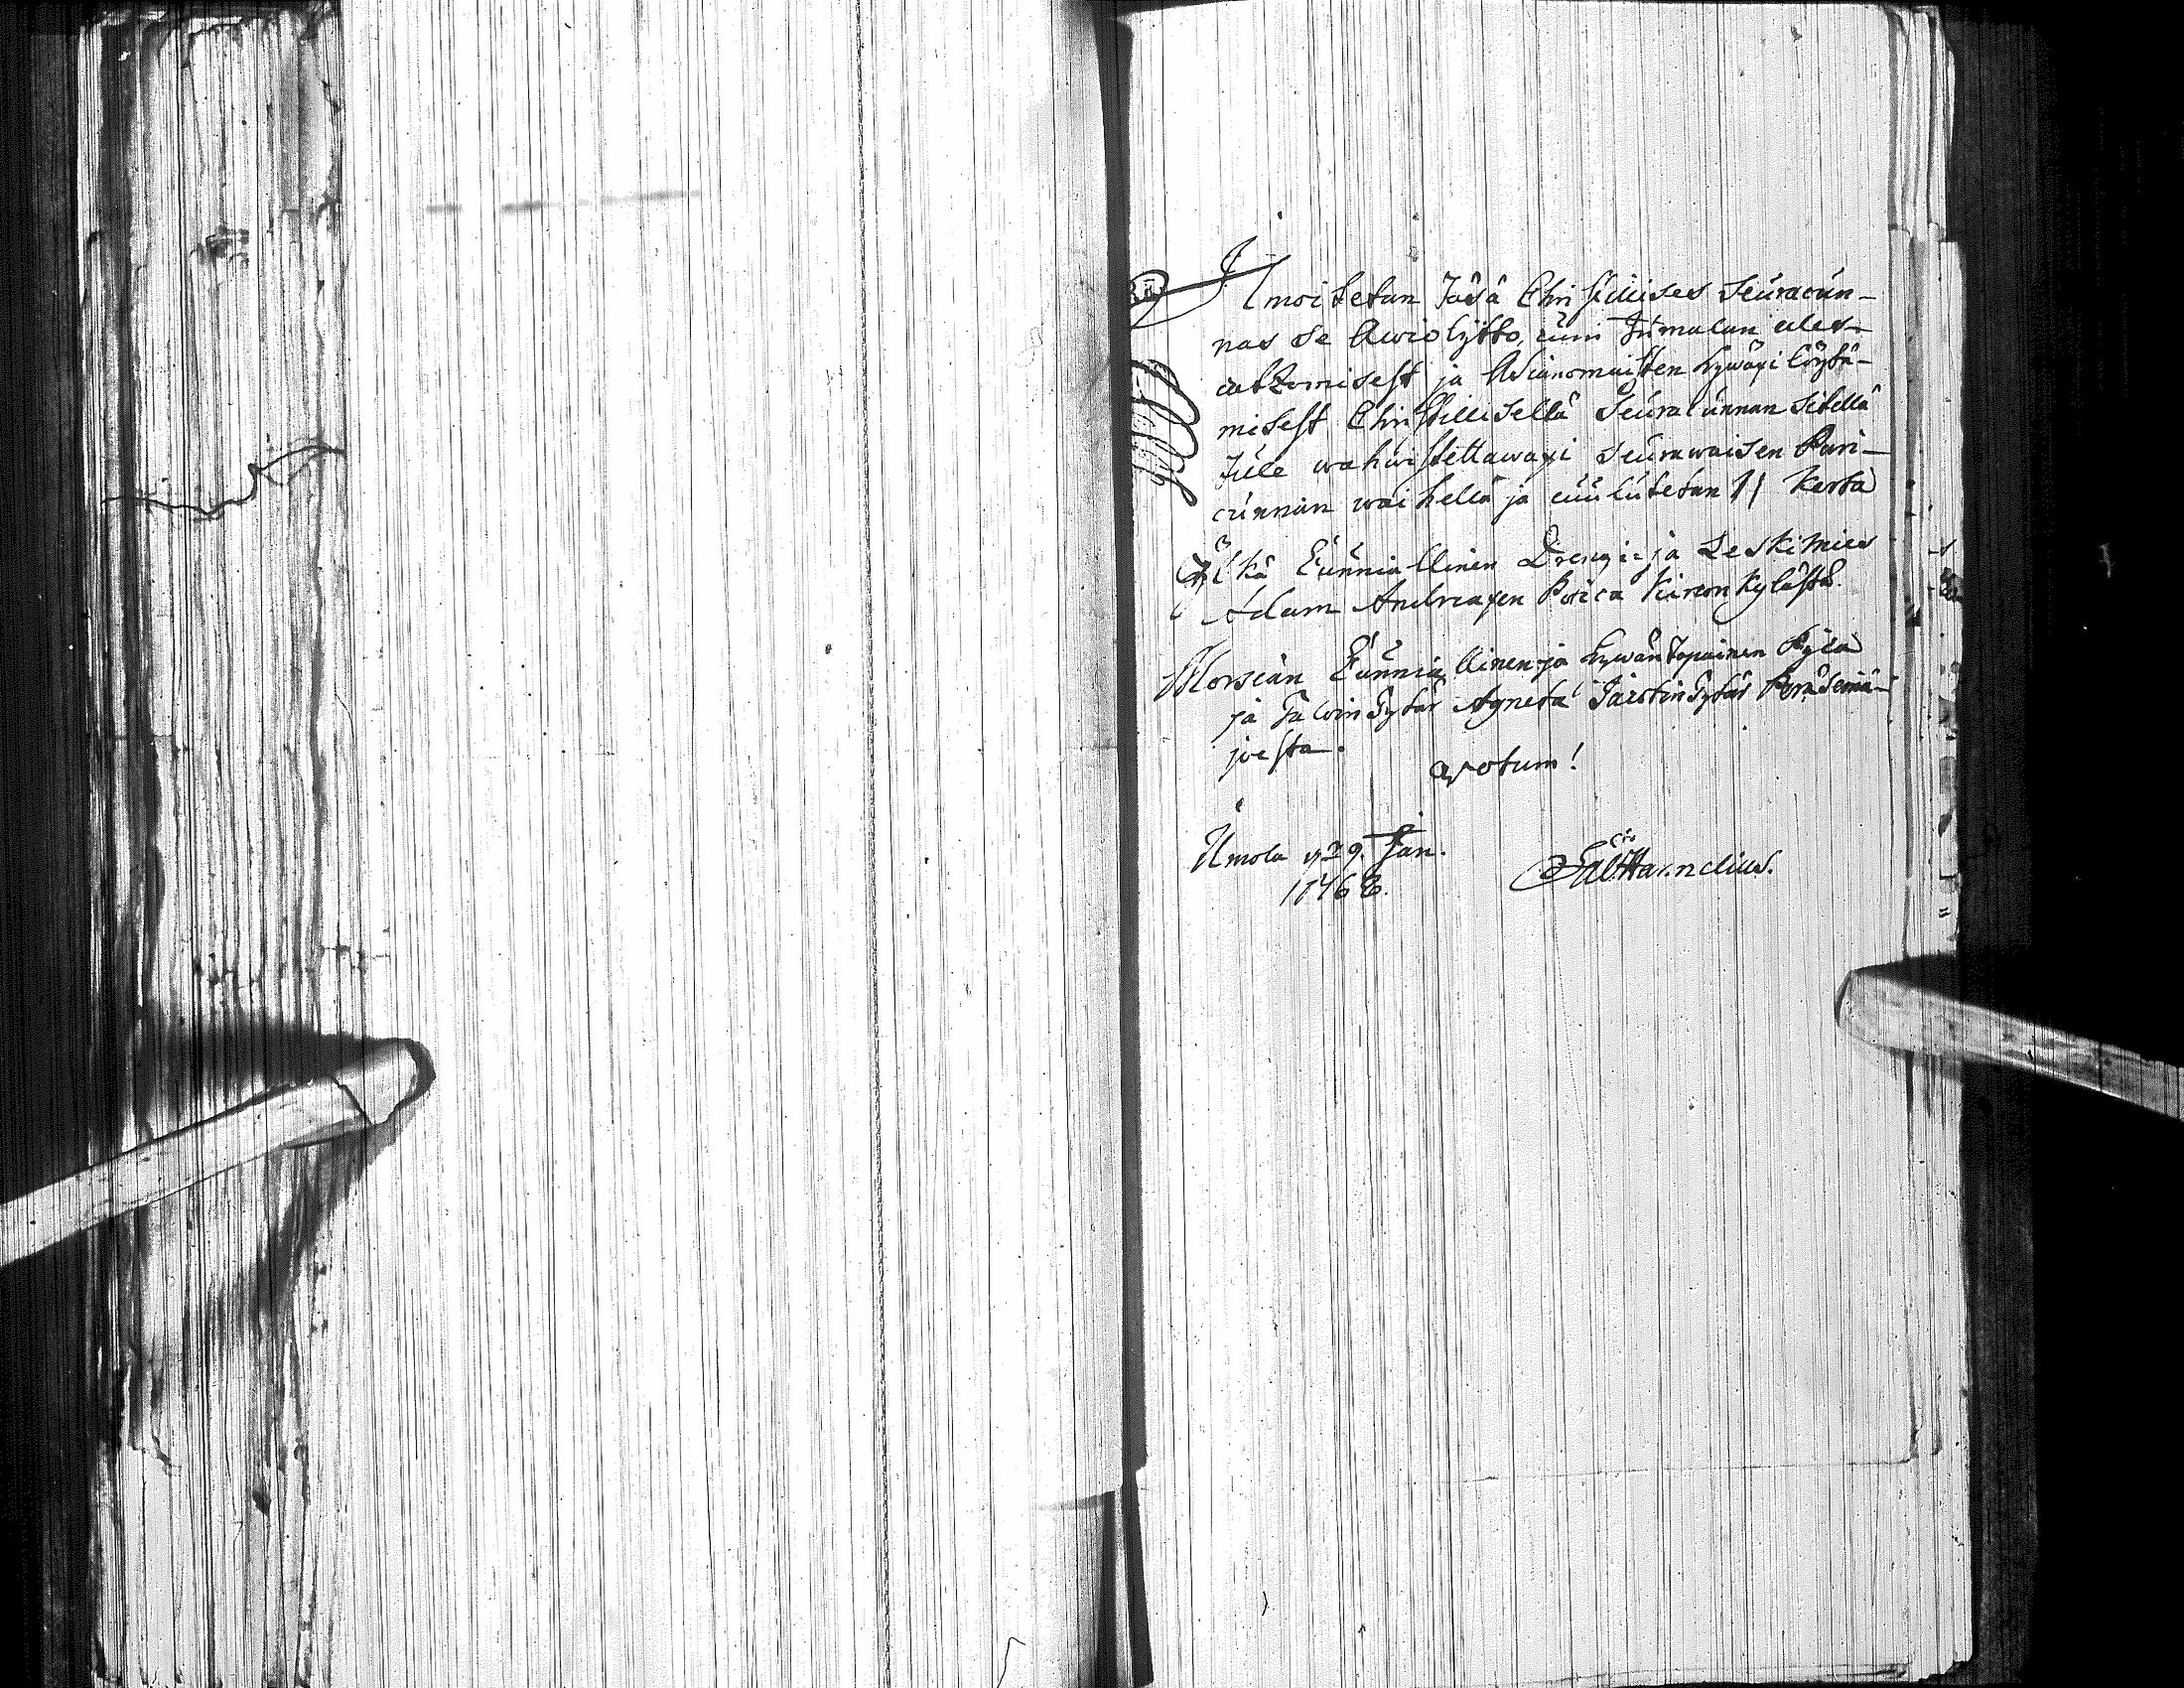 Ilmoitetan Täsä Christillises Seuracun-
nas se Awiolijtto, cuin Jumalan ales-
catzomisest ja Asianomaisten hywäxi löytä-
misest Christillisellä Seuracunnan Sitellä
Tule wahwistettawaxi seurawaisen Pari-
cunnan waihellä ja cuulutetan 1| Kerta
Ylkä Cunniallinen Drengi ja Leskimies
Adam Andreaxen Kylästä
Morsian Cunniallinen ja hywäntapainen Pijca
ja Taloin Tytär Agneta Tytär Peräseinä-
joesta.
Votum!
Ilmola 29. Jan.
1768.